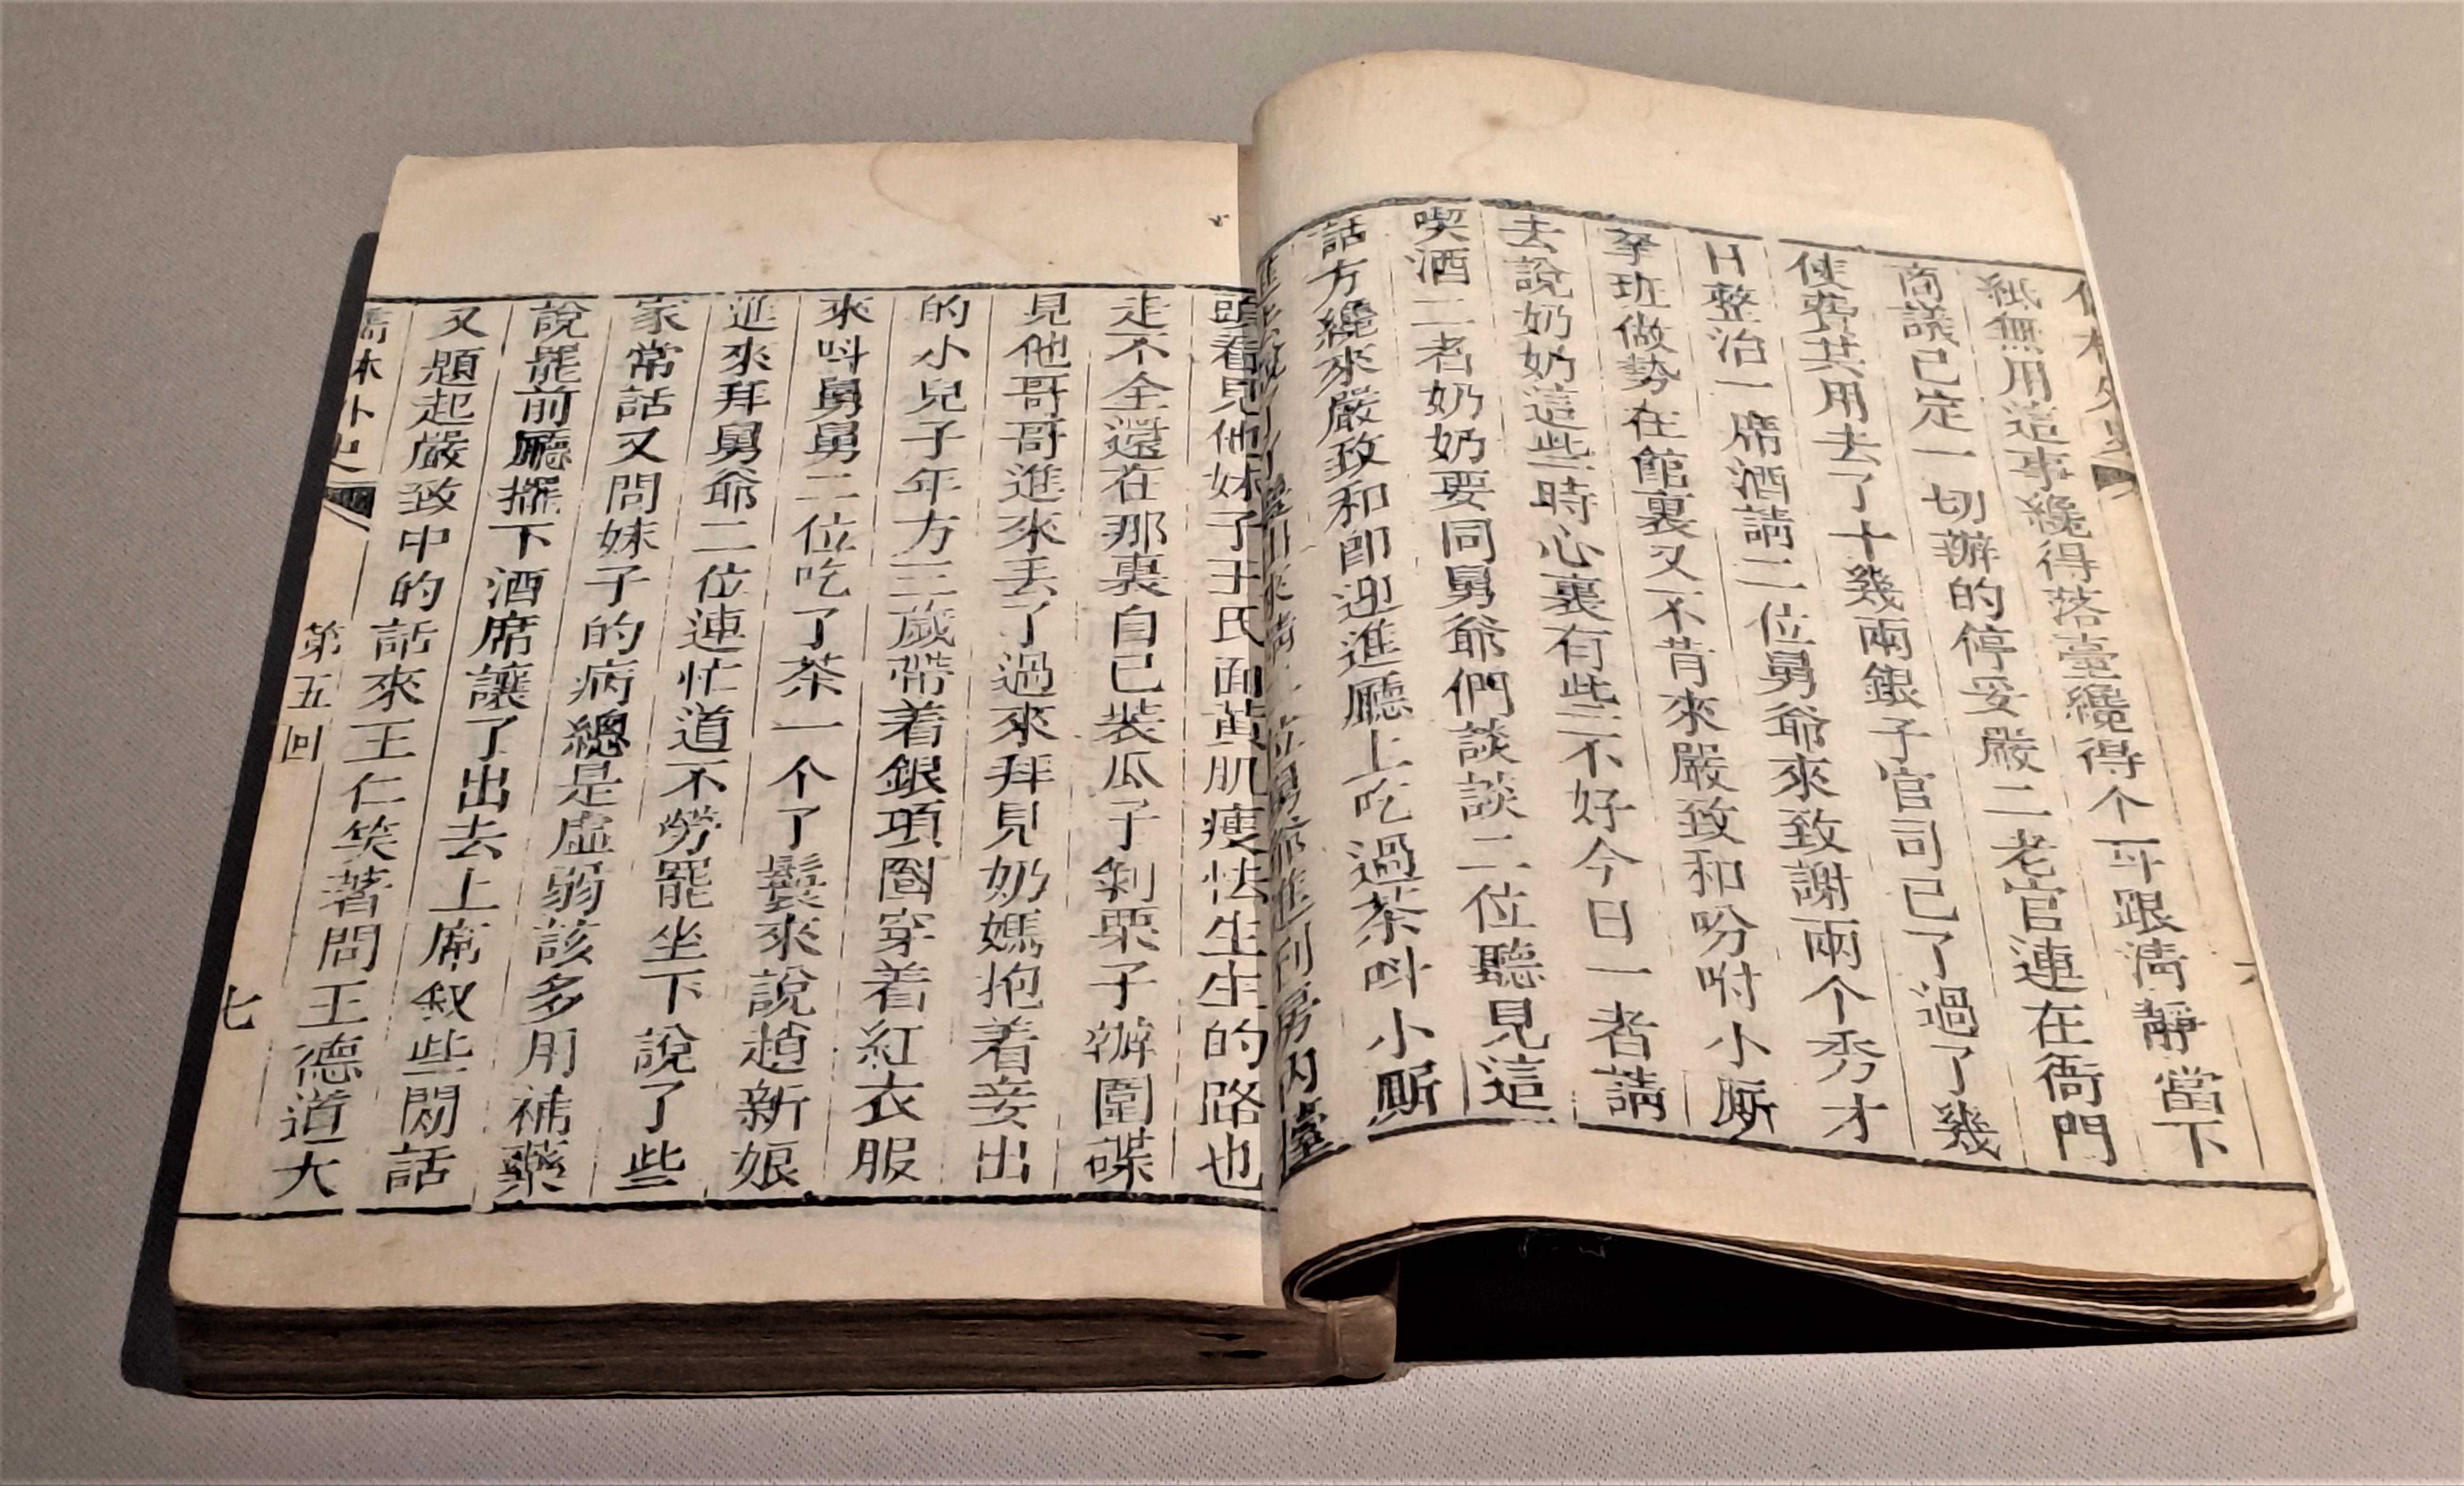 儒林外史
紙無用這事纔得落臺纔得个耳跟清靜當下
商議已定一切辦的停妥嚴二老官連在衙門
使費共用去了十幾兩銀子官司已了過了幾
日整治一席酒請二位舅爺來致謝兩个秀才
拏班做勢在館裏又不肯來嚴致和吩咐小厮
去說奶奶這些時心裏有些不好今日一者請
喫酒二者奶奶要同舅爺們談談二位聽見這
話方纔來嚴致和即迎進廳上吃過茶叫小厮
進去說了丫鬟出來請二位舅爺進到房内擡
頭看見他妹子王氏面黃肌瘦怯生生的路也
走不全還在那裏自己裝瓜子剝栗子辦圍碟
見他哥哥進來丟了過來拜見奶媽抱着妾出
的小兒子年方三歲帶着銀項圈穿着紅衣服
來叫舅舅二位吃了茶一个丫鬟來說趙新娘
進來拜舅爺二位連忙道不勞罷坐下說了些
家常話又問妹子的病總是虛弱該多用補藥
說罷前廳擺下酒席讓了出去上席叙些閒話
又題起嚴致中的話來王仁笑著問王德道大
儒林外史 第五回 七